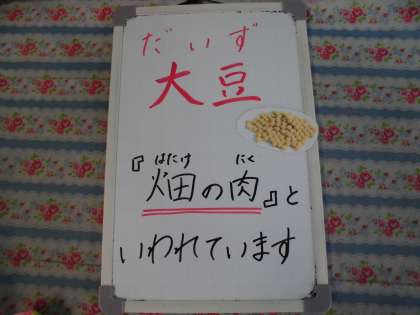 だいず
大豆
はたけ にく
『畑の肉』と
いわれています